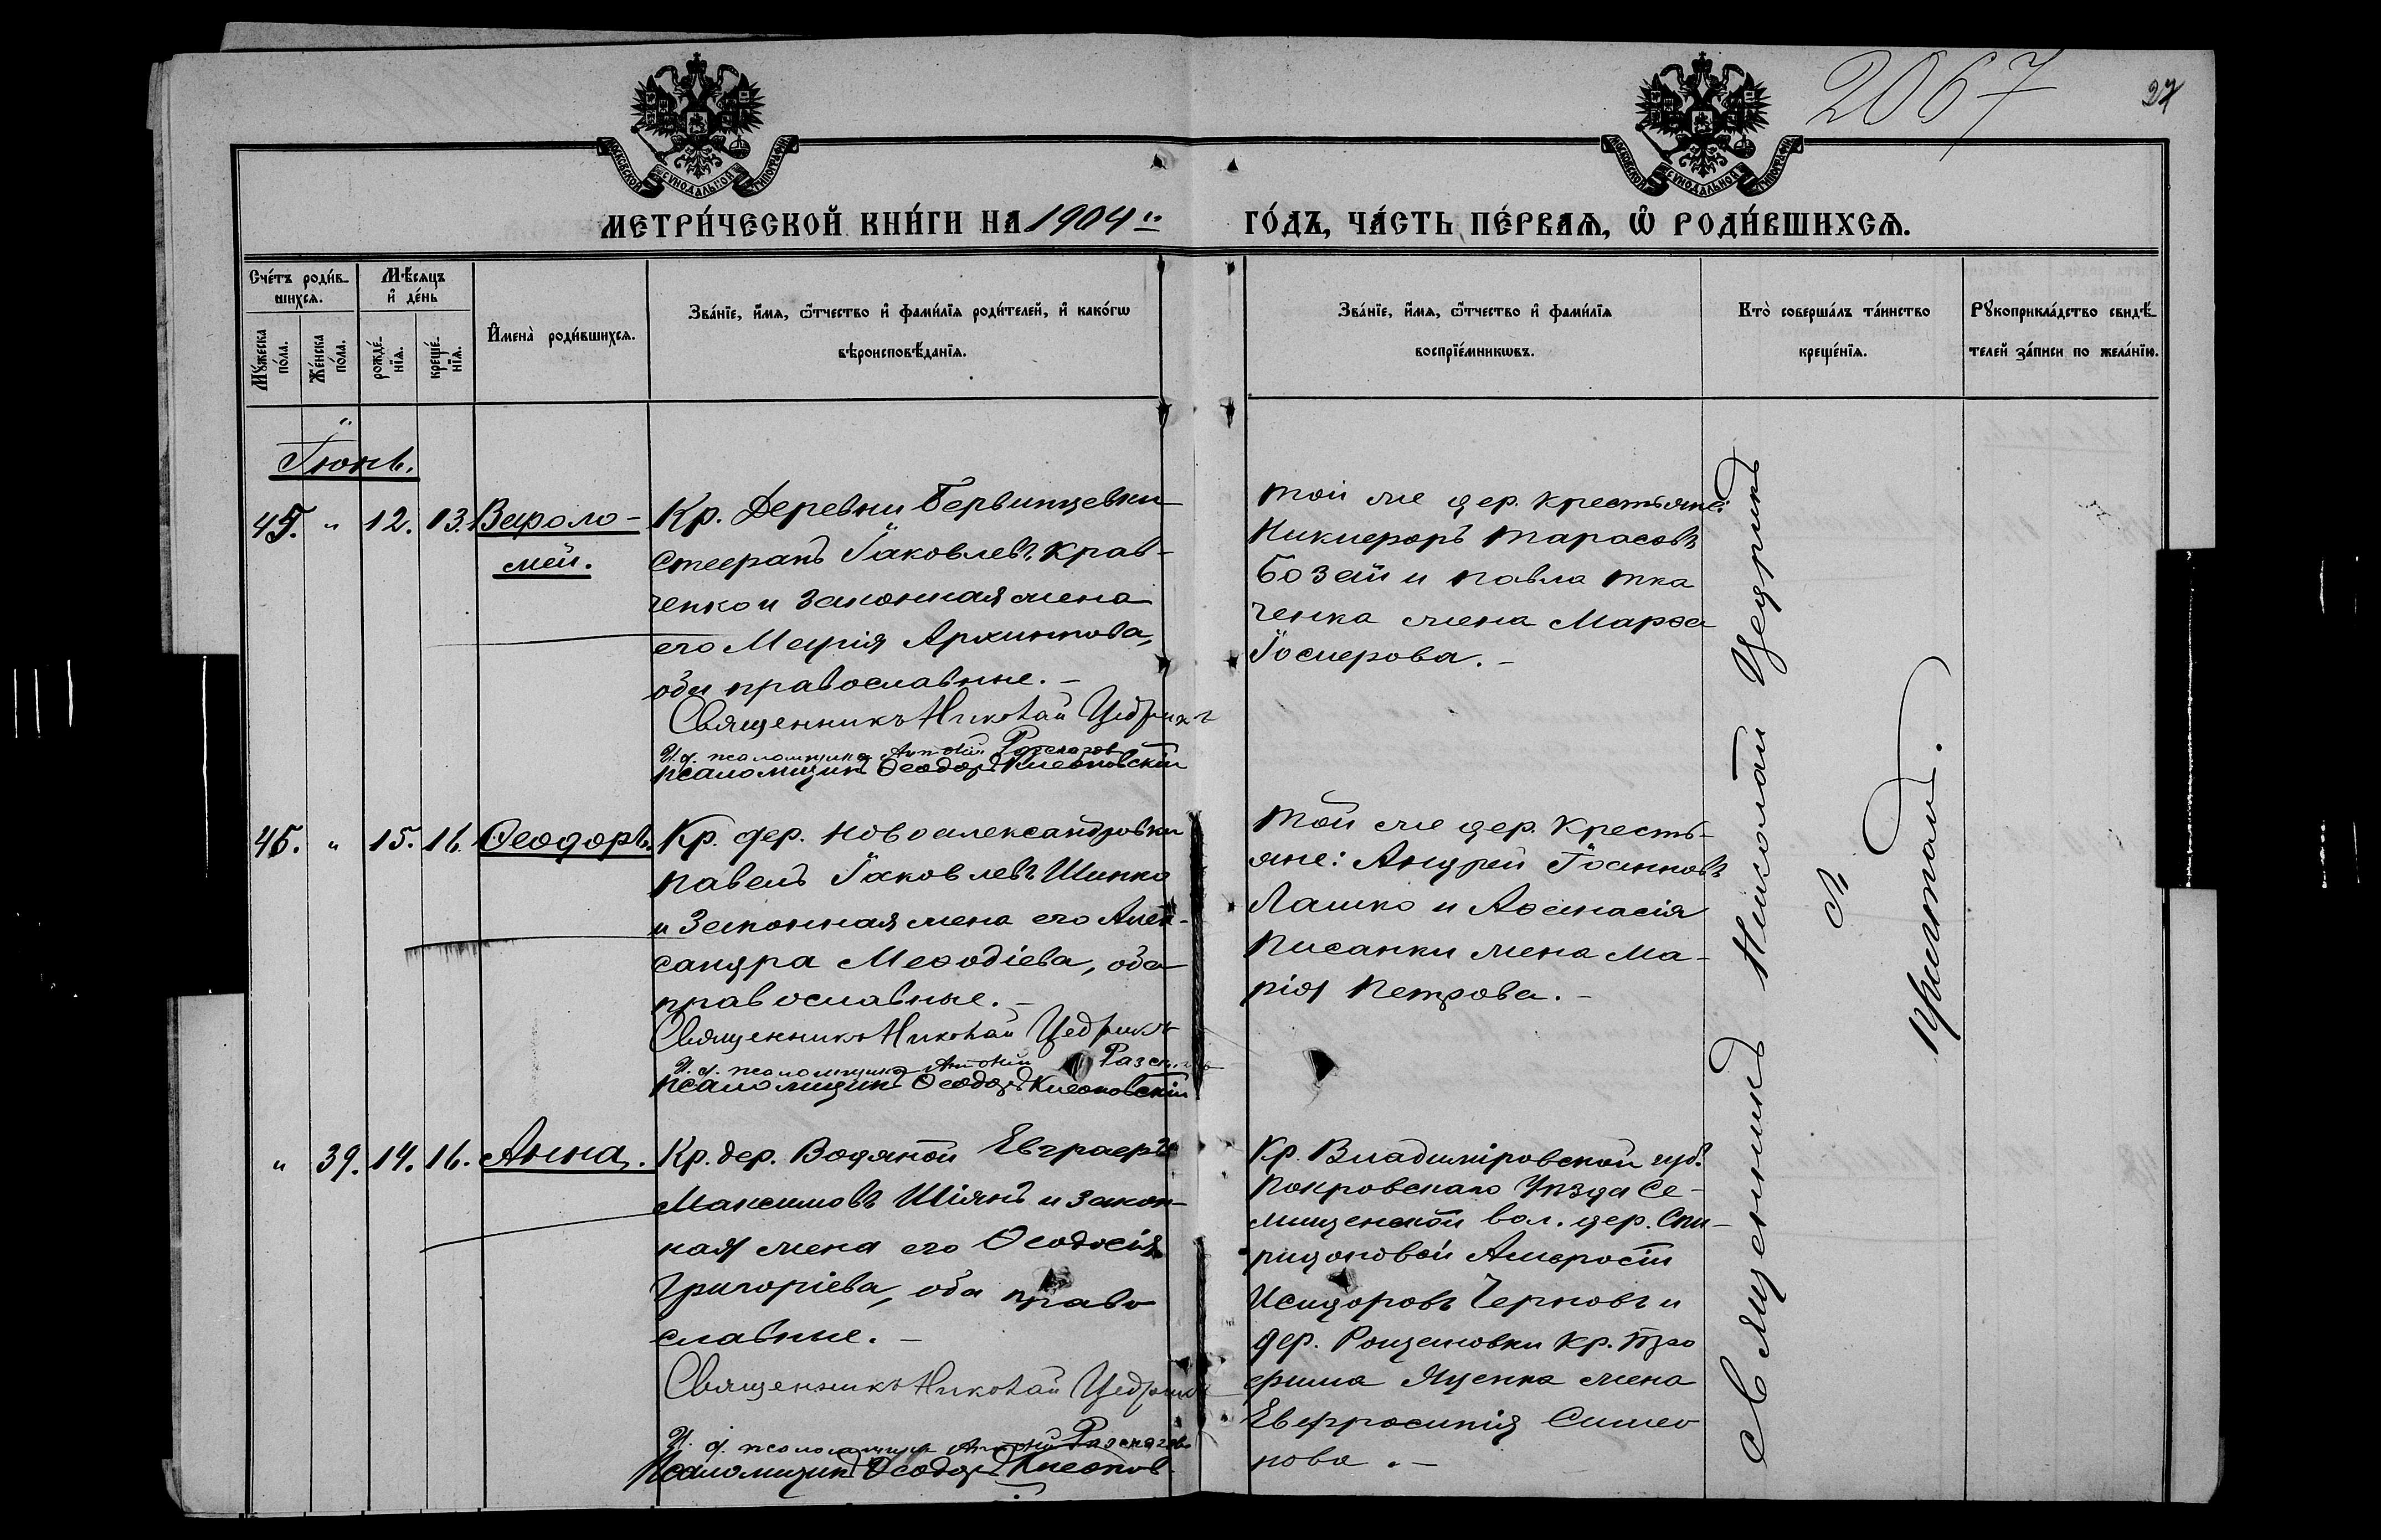 2067
27
МОСКОВСКОЙ СѴНОДАЛЬНОЙ ТИПОГРАФІИ
МОСКОВСКОЙ СѴНОДАЛЬНОЙ ТИПОГРАФІИ
МЕТРИ́ЧЕСКОЙ КНИ́ГИ НА 1904 й ГО́ДЪ, ЧА́СТЬ ПЕ́РВАѦ, Ѽ РОДИ́ВШИХСѦ.
Сче́тъ роди́в-
шихсѧ.
Мѣ́сяцъ
и҆ де́нь
Мꙋ́жеска
по́ла.
Же́нска
по́ла.
рожде́-
нїѧ.
креще́-
нїѧ.
И҆мена̀ роди́вшихсѧ.
Зва́нїе, и҆́мѧ, ѻ҆́тчество и҆ фами́лїѧ роди́телей, и҆ како́гѡ
вѣроисповѣ́данїѧ.
Зва́нїе, и҆́мѧ, ѻ҆́тчество и҆ фами́лїѧ
воспрїе́мникѡвъ.
Кто̀ соверша́лъ та́инство
креще́нїѧ.
Рꙋкоприкла́дство свидѣ́-
телей за́писи по жела́нїю.
Іюнь.
45. " 12. 13. Варѳоло-
мей.
Кр. Деревни Бервицевки
Стефанъ Іаковлевъ Крав-
ченко и законная жена
его Марія Архиппова,
оба православные. -
Священникъ Николай Цедрикъ
И. д. псаломщика Антоній Разсказов
Псаломщикъ Ѳеодоръ
той же дер. крестьяне:
Никифоръ Тарасовъ
Бозай и Павла Тка
ченка жена Марѳа
Іосифова. -
46. " 15. 16. Ѳеодоръ.
Кр. дер. Новоалександровки
Павелъ Іаковлевъ Шинко
и законная жена его Алек-
сандра Меѳодіева, оба
православные. -
Священникъ Николай Цедрикъ
И. д. псаломщика Антоній Разсказов
Псаломщикъ Ѳеодоръ
той же дер. кресть-
яне: Андрей Іоанновъ
Лашко и Аѳанасія
Писанки жена Ма-
рія Петрова. -
" 39. 14. 16. Анна.
Кр. дер. Водяной Евграфъ
Максимовъ Шіянъ и закон-
ная жена его Ѳеодосія
Григоріева, оба право
славные. -
Священникъ Николай Цедрикъ
И. д. псаломщика Антоній Разсказовъ
Псаломщикъ Ѳеодоръ
Кр. Владимiровской губ.
Покровскаго Уѣзда Се-
мищенской вол. дер. Спи-
ридоновой Амвросій
Исидоровъ Черновъ и
дер. Рощаховки кр. Тро
фима Яценка жена
Евфросинія Симео
нова. -
Священникъ Николай Цедрикъ
съ
причтомъ.